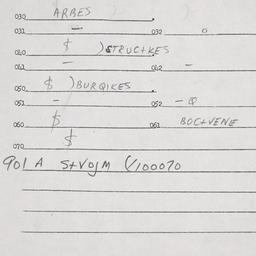 030 ARBES
031 – 032 o
040 $ )STRUCTKES
041 – 042 –
050 $ )BURQIKES
051 – 052 – Q
060 $ 061 BOCTVENE
070 $
901 A STVOJM (/100070